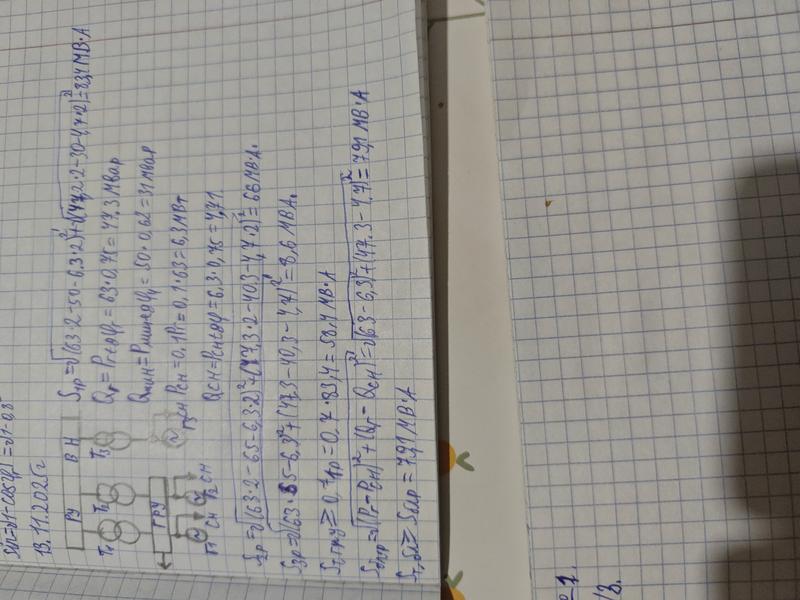 Sin=√1-cosφ² = √1-0,8²
13.11.2025г
РУ ВН
T1 T2 T3
ГРУ
Г1 СН Г2 СН Г3 СН
S1р=√(63·2-50-6,3·2)²+(47,2·2-30-4,7·2)²=83,4 МВ·А
Qг=Pгtgφг=63·0,75=47,3 МВар
Qмин=Pминtgφг=50·0,62=31 МВар
Pсн=0,1Pг=0,1·63=6,3 МВт
Qсн=Pснtgφ=6,3·0,75=4,71
S2р=√(63·2-65-6,3·2)²+(47,3·2-40,3-4,7·2)²=66 МВ·А.
S3р=√(63-65-6,3)²+(47,3-40,3-4,7)²=8,6 МВА.
Sт,гру≥0,7S1р=0,7·83,4=58,4 МВ·А
Sблр=√(Pг-Pсн)²+(Qг-Qсн)²=√(63-6,3)²+(47,3-4,7)²=7,91 МВ·А
Sт,бл≥Sблр=7,91 МВ·А